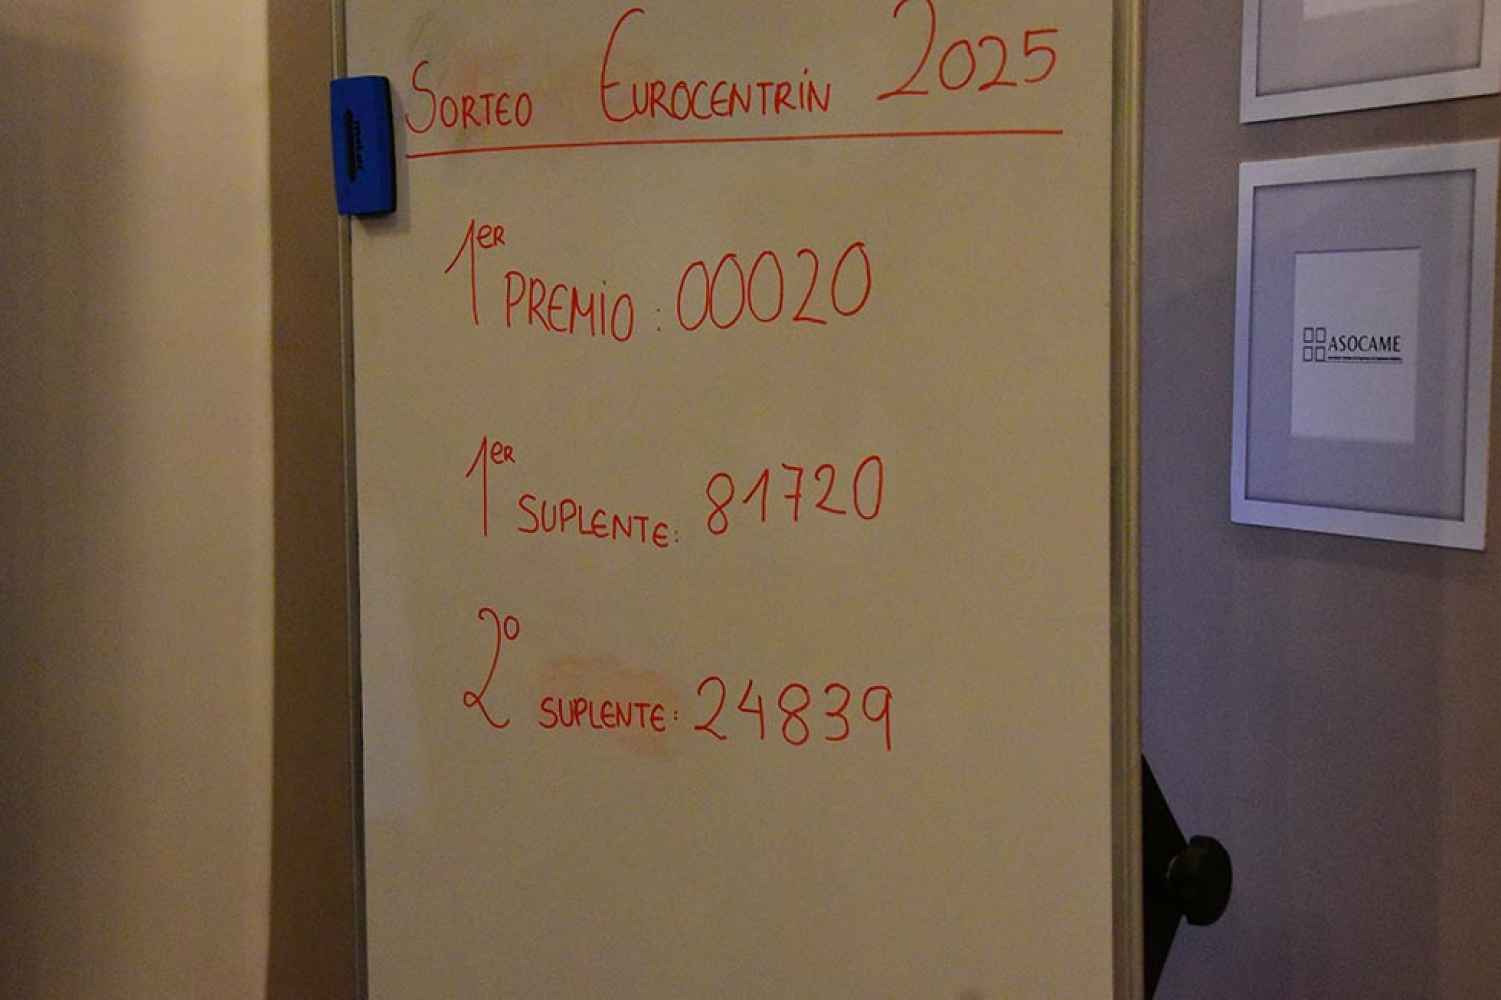 SORTEO EUROCENTRIN 2025
1ER PREMIO: 00020
1ER SUPLENTE: 81720
2º SUPLENTE: 24839
ASOCAME